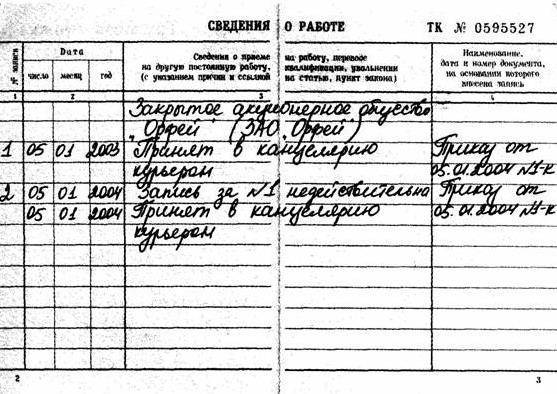 СВЕДЕНИЯ О РАБОТЕ ТК № 0595527
№ записи Дата Сведения о приеме на работу, переводе Наименование,
на другую постоянную работу, квалификации, увольнении дата и номер документа,
число месяц год (с указанием причин и ссылкой на статью, пункт закона) на основании которого
внесена запись
1 2 3 4
Закрытое акционерное общество
„Орфей" (ЗАО „Орфей")
1 05 01 2003 Принят в канцелярию Приказ от
курьером 05.01.2004 №1-к
2 05 01 2004 Запись за №1 недействительна Приказ от
05 01 2004 Принят в канцелярию 05.01.2004 №1-к
курьером
2 3